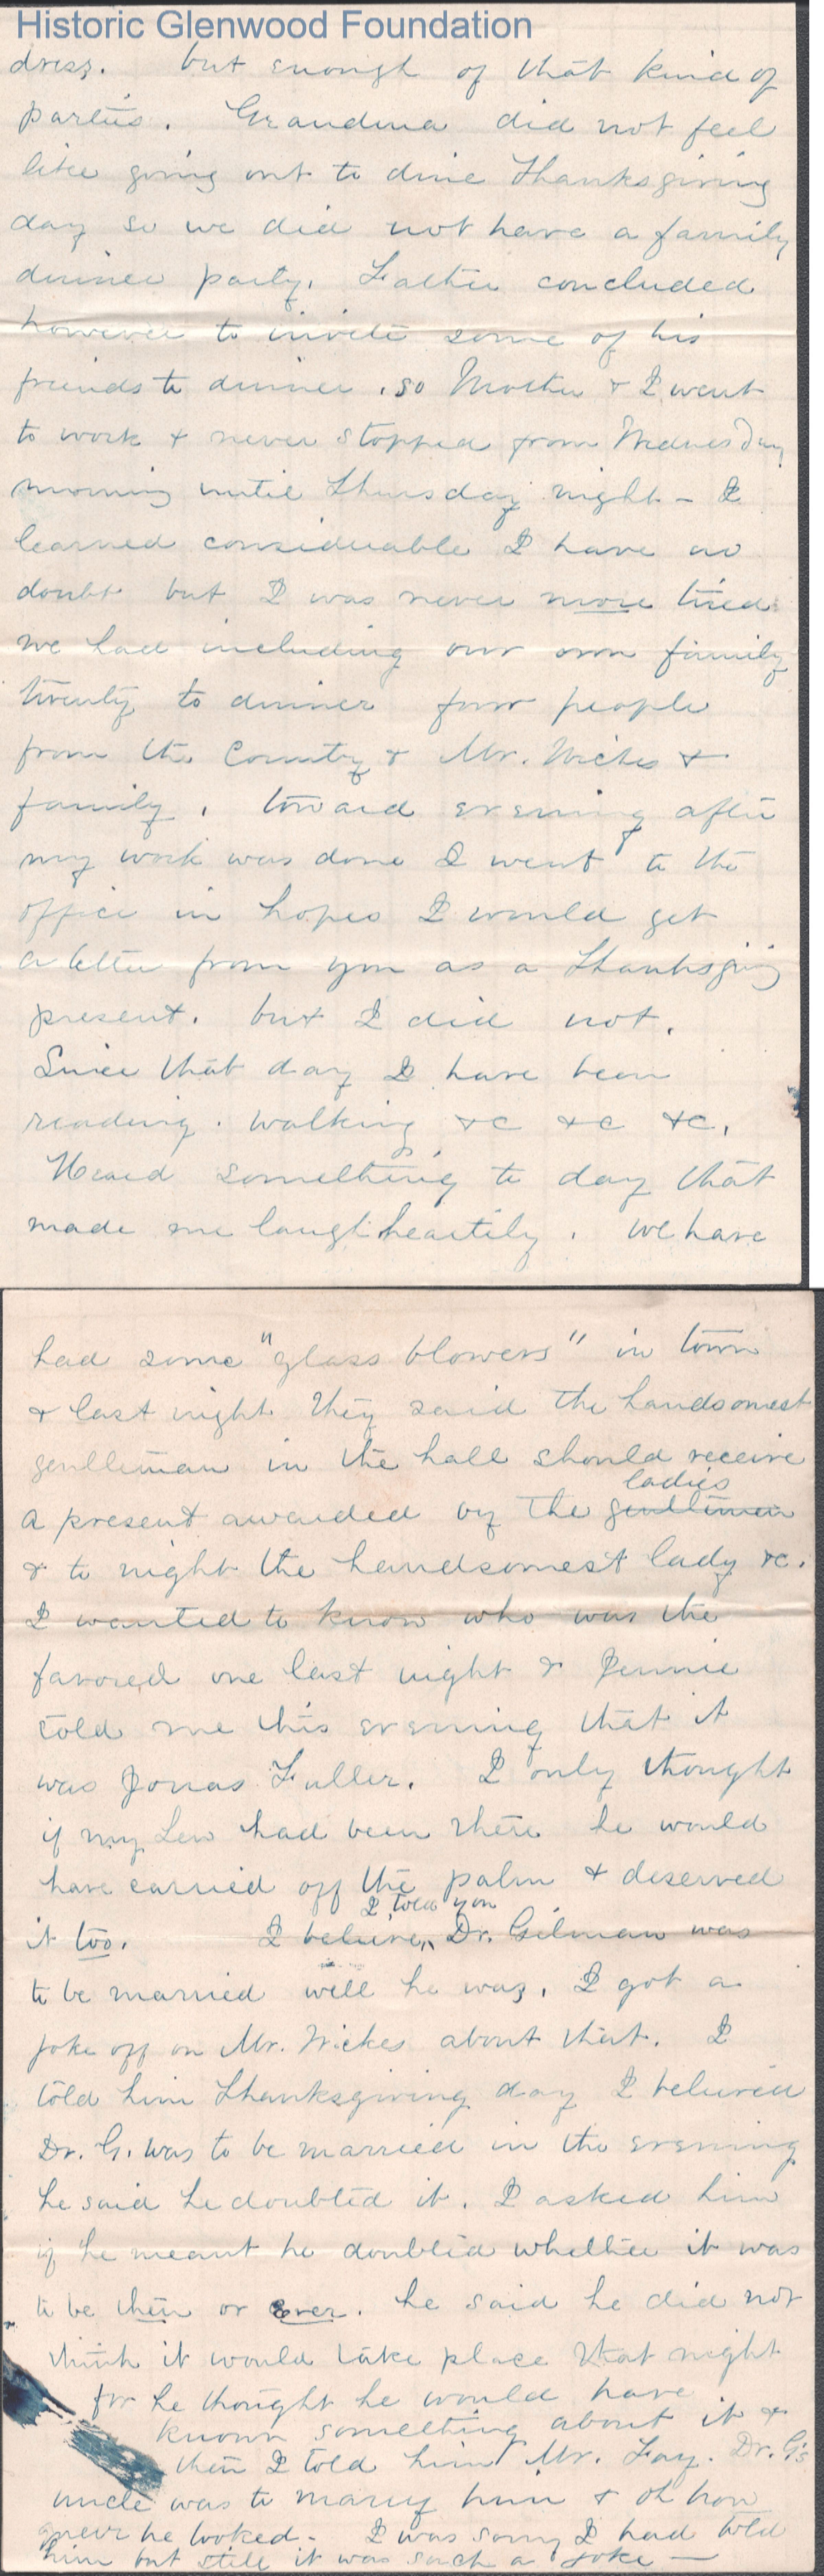 Historic Glenwood Foundation
dress. but enough of that kind of
parties. Grandma did not feel
like going out to dine Thanksgiving
day so we did not have a family
dinner party. Father concluded
however to invite some of his
friends to dinner, so Mother & I went
to work & never stopped from Wednesday
morning until Thursday night - I
learned considerable I have no
doubt but I was never more tired.
we had including our own family
twenty to dinner four people
from the Country & Mr. Wickes &
family. toward evening after
my work was done I went to the
office in hopes I would get
a letter from you as a Thanksgiving
present. but I did not.
Since that day I have been
reading. walking &c &c &c.
Heard something to day that
made me laugh heartily. We have
had some "glass blowers" in town
& last night they said the handsomest
gentleman in the hall should receive
ladies
a present awarded by the gentlemen
& to night the handsomest lady &c.
I wanted to know who was the
favored one last night & Jennie
told me this evening that it
was Jonas Fuller. I only thought
if my Lew had been there he would
have carried off the palm & deserved
I told you
it too. I believe, Dr. Gilman was
to be married well he was. I got a
joke off on Mr. Wickes about that. I
told him Thanksgiving day I believed
Dr. G. was to be married in the evening
he said he doubted it. I asked him
if he meant he doubted whether it was
to be then or ever. he said he did not
think it would take place that night
for he thought he would have
known something about it &
then I told him Mr. Fay. Dr. G's
uncle was to marry him & oh how
queer he looked - I was sorry I had told
him but still it was such a joke -